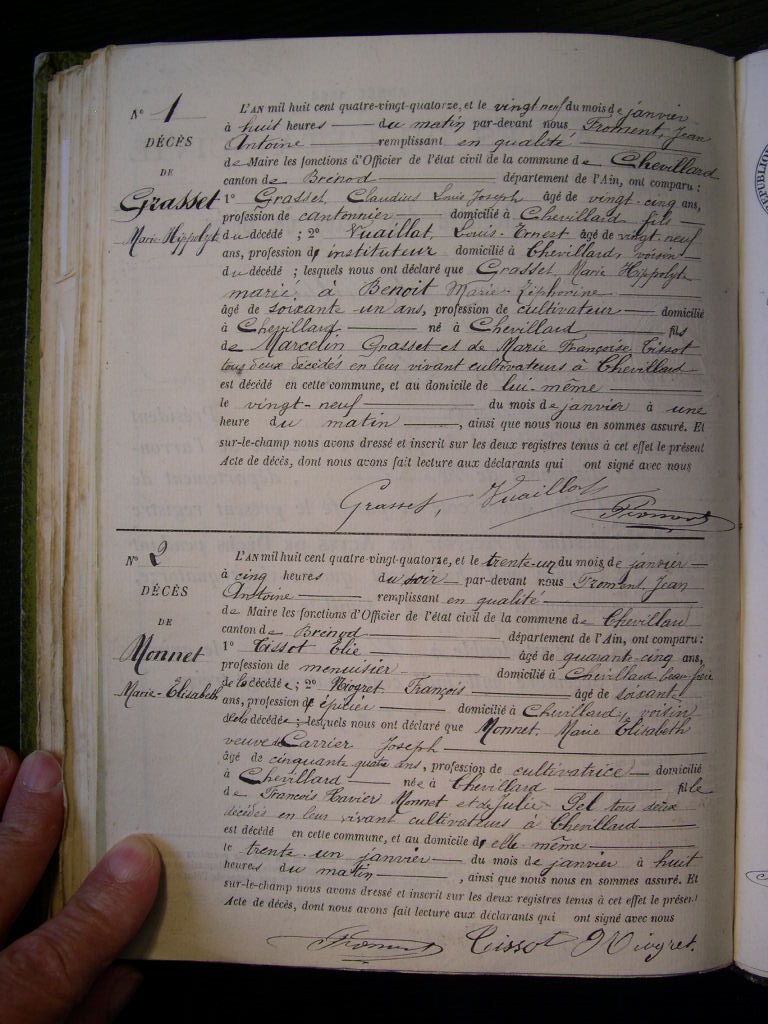 N° 1
DÉCÈS
DE
Grasset
Marie Hippolyte
L'AN mil huit cent quatre-vingt-quatorze, et le vingt neuf du mois de janvier
à huit heures du matin par-devant nous Froment, Jean
Antoine remplissant en qualité
de Maire les fonctions d'Officier de l'état civil de la commune de Chevillard
canton de Brénod département de l'Ain, ont comparu :
1° Grasset, Claudius Louis Joseph âgé de vingt-cinq ans,
profession de cantonnier domicilié à Chevillard fils
du décédé ; 2° Vuaillat, Louis-Ernest âgé de vingt-neuf
ans, profession d' instituteur domicilié à Chevillard, voisin
du décédé ; lesquels nous ont déclaré que Grasset, Marie Hippolyte
marié à Benoit Marie-Zéphorine
âgé de soixante-un ans, profession de cultivateur domicilié
à Chevillard né à Chevillard fils
de Marcelin Grasset et de Marie Françoise Tissot
tous deux décédés en leur vivant cultivateurs à Chevillard
est décédé en cette commune, et au domicile de lui-même
le vingt-neuf du mois de janvier à une
heure du matin , ainsi que nous nous en sommes assuré. Et
sur-le-champ nous avons dressé et inscrit sur les deux registres tenus à cet effet le présent
Acte de décès, dont nous avons fait lecture aux déclarants qui ont signé avec nous
Grasset, Vuaillat Froment
N° 2
DÉCÈS
DE
Monnet
Marie-Élisabeth
L'AN mil huit cent quatre-vingt-quatorze, et le trente-un du mois de janvier
à cinq heures du soir par-devant nous Froment, Jean
Antoine remplissant en qualité
de Maire les fonctions d'Officier de l'état civil de la commune de Chevillard
canton de Brénod département de l'Ain, ont comparu :
1° Tissot Elie âgé de quarante-cinq ans,
profession de menuisier domicilié à Chevillard beau-frère
de la décédée ; 2° Niogret François âgé de soixante
ans, profession d' épicier domicilié à Chevillard, voisin
de la décédée ; lesquels nous ont déclaré que Monnet, Marie Elisabeth
veuve de Carrier Joseph
âgé de cinquante quatre ans, profession de cultivatrice domicilié
à Chevillard née à Chevillard fille
de François Xavier Monnet et de Julie Pel tous deux
décédés en leur vivant cultivateurs à Chevillard
est décédé en cette commune, et au domicile d' elle-même
le trente-un janvier du mois de janvier à huit
heures du matin , ainsi que nous nous en sommes assuré. Et
sur-le-champ nous avons dressé et inscrit sur les deux registres tenus à cet effet le présent
Acte de décès, dont nous avons fait lecture aux déclarants qui ont signé avec nous
Froment Tissot Niogret.